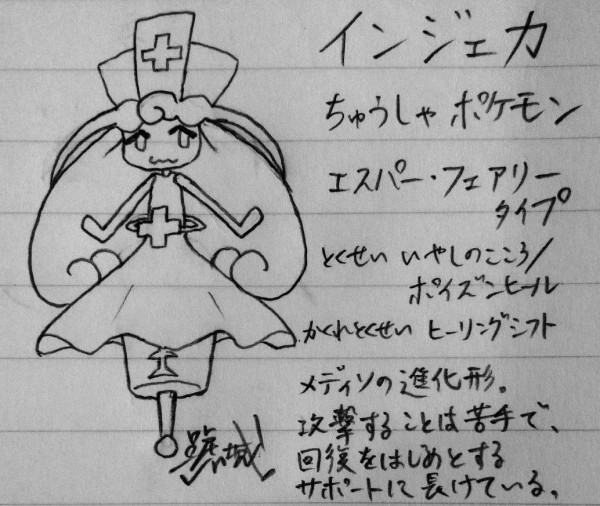 インジェカ
ちゅうしゃポケモン
エスパー・フェアリー
タイプ
とくせい いやしのこころ/
ポイズンヒール
かくれとくせい ヒーリングシフト
メディソの進化形。
攻撃することは苦手で、
回復をはじめとする
サポートに長けている。